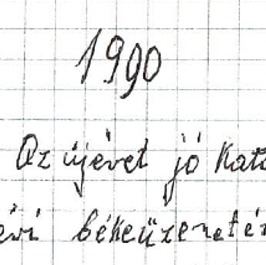 1990
Az újévet jó kat
évi békeüzeneté